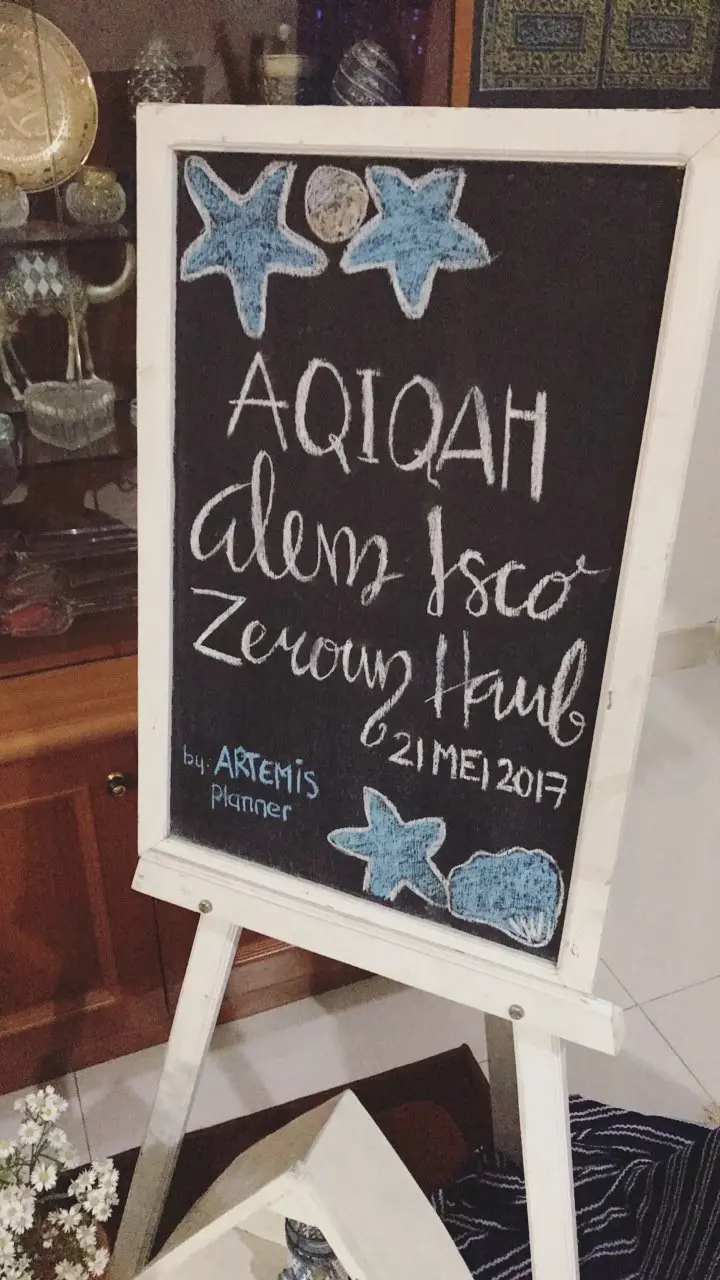 AQIQAH
Alenz Isco
Zeroun Haub
21 MEI 2017
by. ARTEMiS
planner